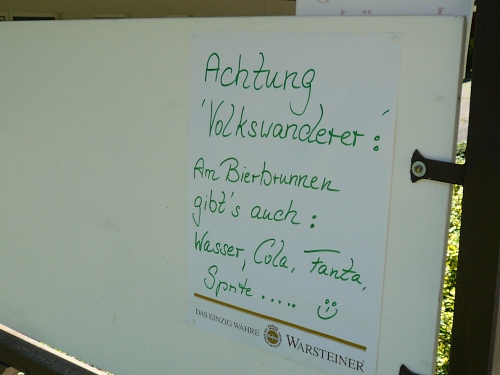 Achtung
'Volkswanderer':
Am Bierbrunnen
gibt's auch:
Wasser, Cola, Fanta,
Sprite ..... ü
DAS EINZIG WAHRE WARSTEINER